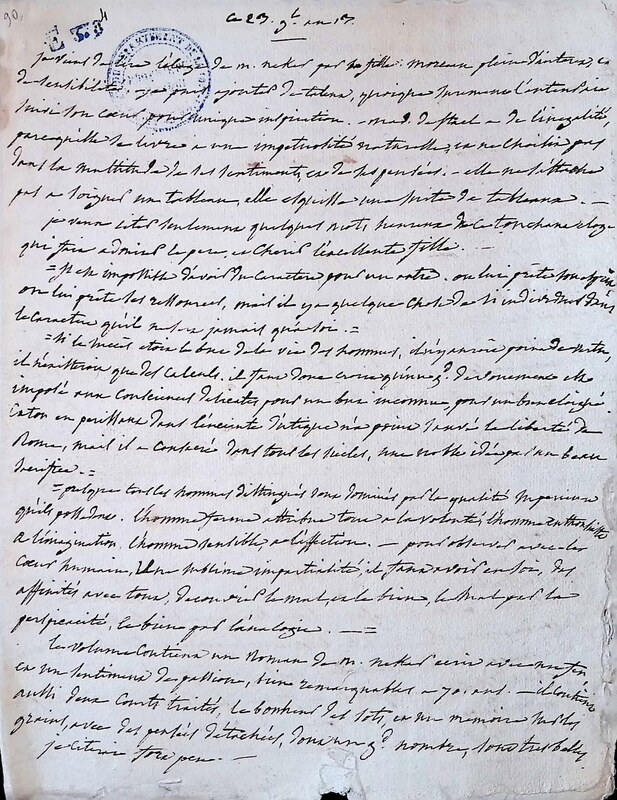 90.
ce 23. 9bre an 13.
je viens de lire l'eloge de m. neker par sa fille. morceau plein d'interet, et
de sensibilité, et je puis ajouter de talens, quoique
son coeur pour unique inspiration. — mad. de stael a de l'inegalité,
parcequ'elle se livre a une impetuosité naturelle, et ne choisit pas
dans la multitude de ses sentimens, et de ses pensées. — elle ne s'attache
pas a soigner un tableau, elle esquisse une suite de tableaux. —
je veux citer seulement quelques mots heureux de ce touchant eloge
qui fait admirer le pere, et cherir l'excellente fille. —
= il est impossible d'avoir du caractere pour un autre. on lui prête son esprit
on lui prête ses ressources, mais il y a quelque chose de si individuel dans
le caractere qu'il ne sera jamais qu'a soi. =
= si le succès etoit le but de la vie des hommes, il n'y auroit point de vertu,
il n'existeroit que des calculs. il faut donc croire qu'un gd. devouement est
imposé aux consciences delicates, pour un but inconnu, pour un but eloigné.
Caton en perissant dans l'enceinte d'utique n'a point sauvé la liberté de
Rome, mais il a consacré dans tous les siecles, une noble idée par un beau
sacrifice. =
= presque tous les hommes distingués sont dominés par la qualité superieure
qu'ils possedent. l'homme ferme attribue tout a la volonté, l'homme enthousiaste
a l'imagination, l'homme sensible, a l'affection. — pour observer avec les
coeur humain, une sublime impartialité, il faut avoir en soi, des
affinités avec tout, decouvrir le mal, et le bien, le mal par la
perspicacité, le bien par l'analogie. — =
le volume contient un Roman de m. neker ecrit avec un feu
et un sentiment de passion, bien remarquables a 70. ans. — il contient
aussi deux courts traités, le bonheur des sots, et un memoire sur les
grains, avec des pensées detachées, dont un gd. nombre, sont très belles
je citerai fort peu. —